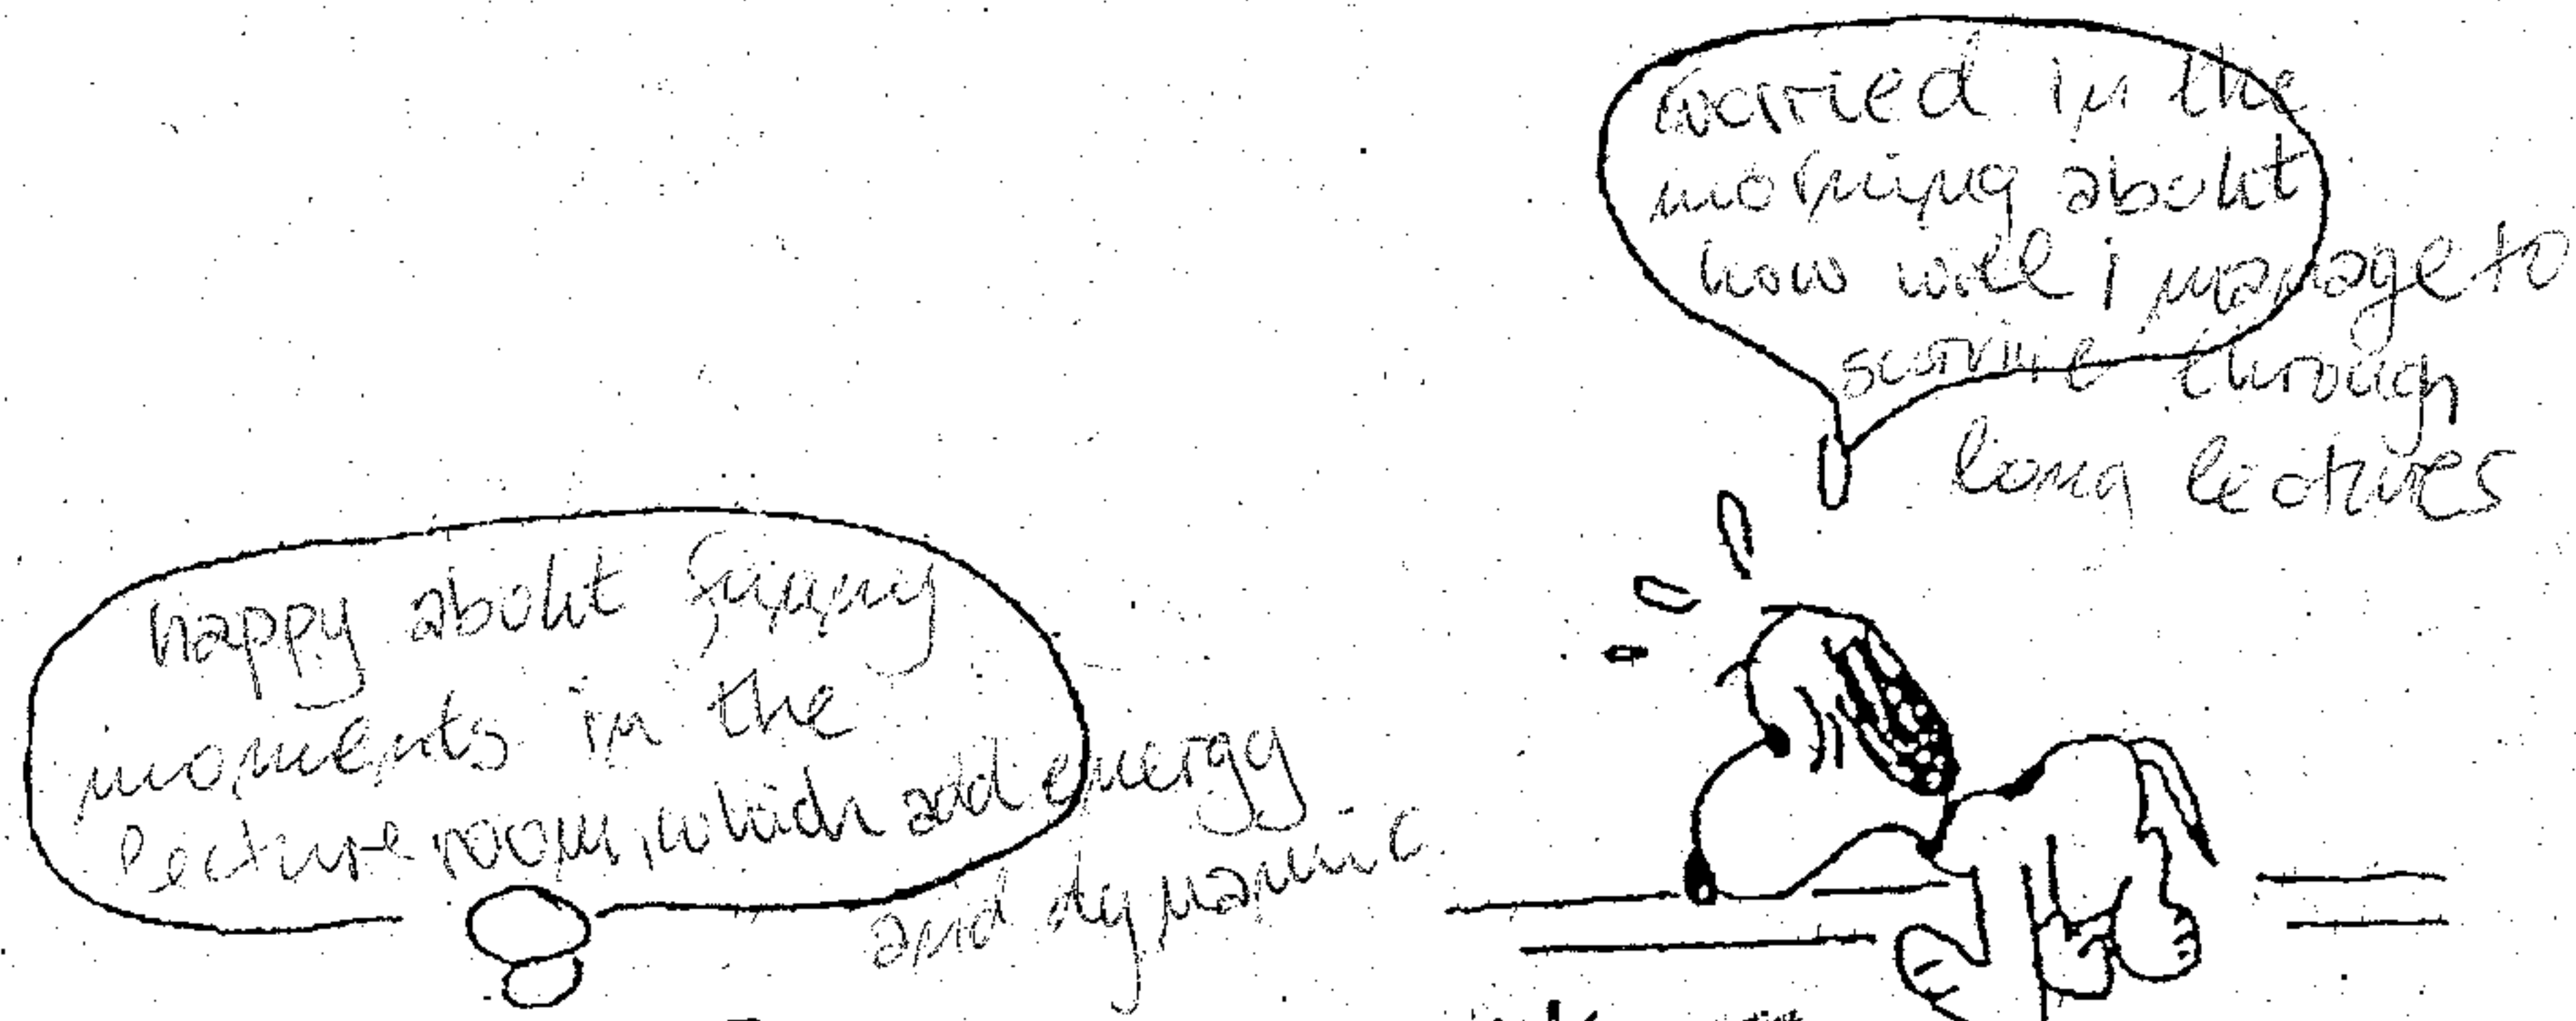 happy about funny
moments in the
lecture room, which add energy
and dynamic
warried in the
morning about
how will i manage to
survive through
long lectures